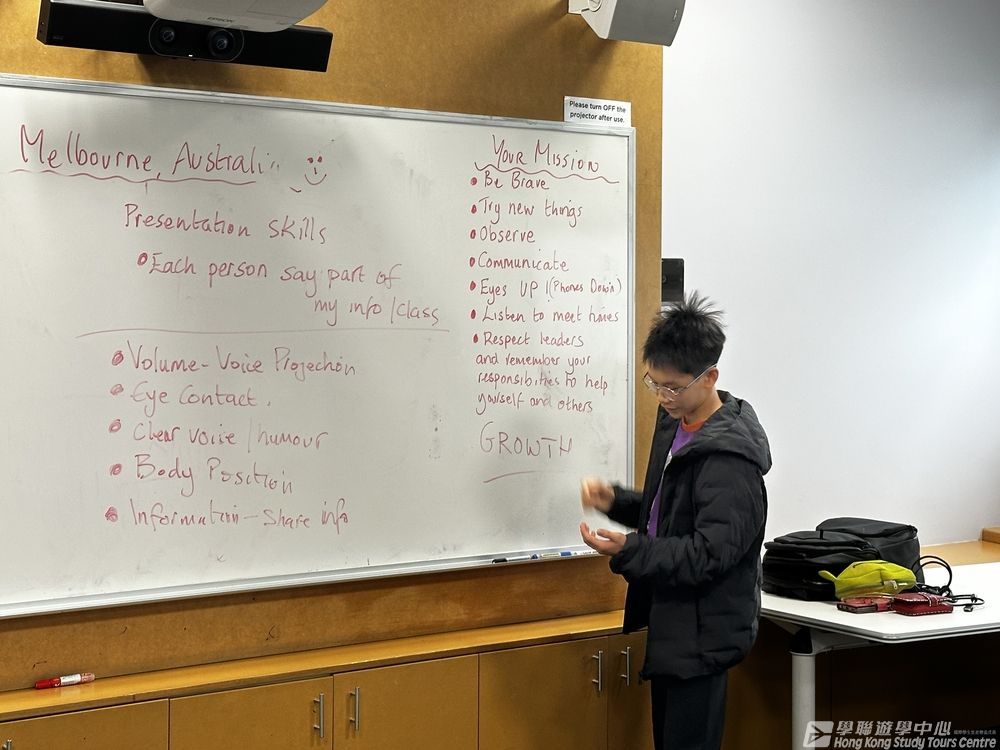 EPSON
Please turn OFF the
projector after use.
Melbourne, Australi
Presentation skills
Each person say part of
my info/class
Volume-Voice Projection
Eye Contact.
Clear voice/humour
Body Position
Information-share info
Your Mission
Be Brave
Try new things
Observe
Communicate
Eyes UP!(Phones Down)
Listen to meet times
Respect leaders
and remember your
responsibilities to help
yourself and others
GROWTH
學聯遊學中心
Hong Kong Study Tours Centre